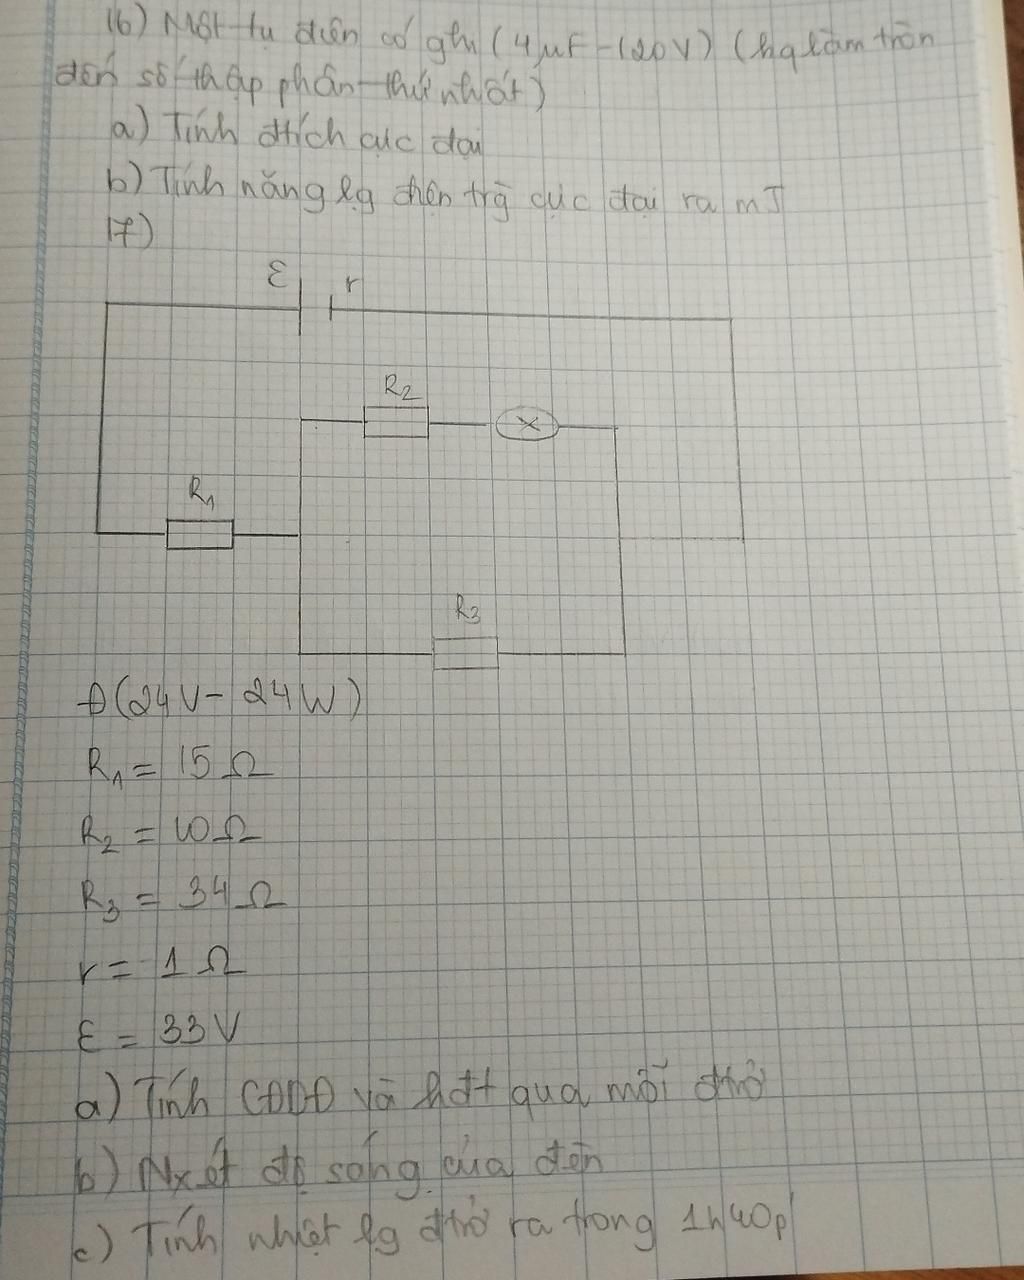 16) Một tụ điện có ghi (4μF - 120V) (hg làm tròn
đến số thập phân thứ nhất)
a) Tính đtích cực đại
b) Tính năng lg điện trg cực đại ra mJ
17)
ε r
R2
R1
R3
Đ(24V - 24W)
R1 = 15 Ω
R2 = 10 Ω
R3 = 34 Ω
r = 1 Ω
ε = 33V
a) Tính CĐDĐ và hđt qua mỗi đtrở
b) Nxét độ sáng của đèn
c) Tính nhiệt lg đtrở ra trong 1h40p